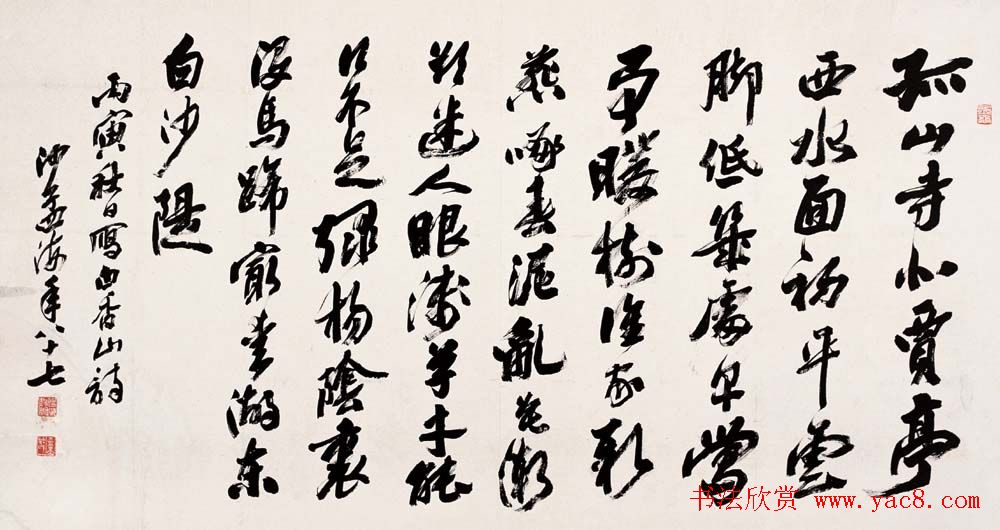 孤山寺北賈亭
西水面初平雲
脚低幾處早鶯
争暖樹誰家新
燕啄春泥亂花漸
欲迷人眼淺草才能
行不足緑楊陰裏
沒馬蹄最愛湖東
白沙堤
丙寅秋日寫白香山詩
沙孟海年八十七
书法欣赏 www.yac8.com